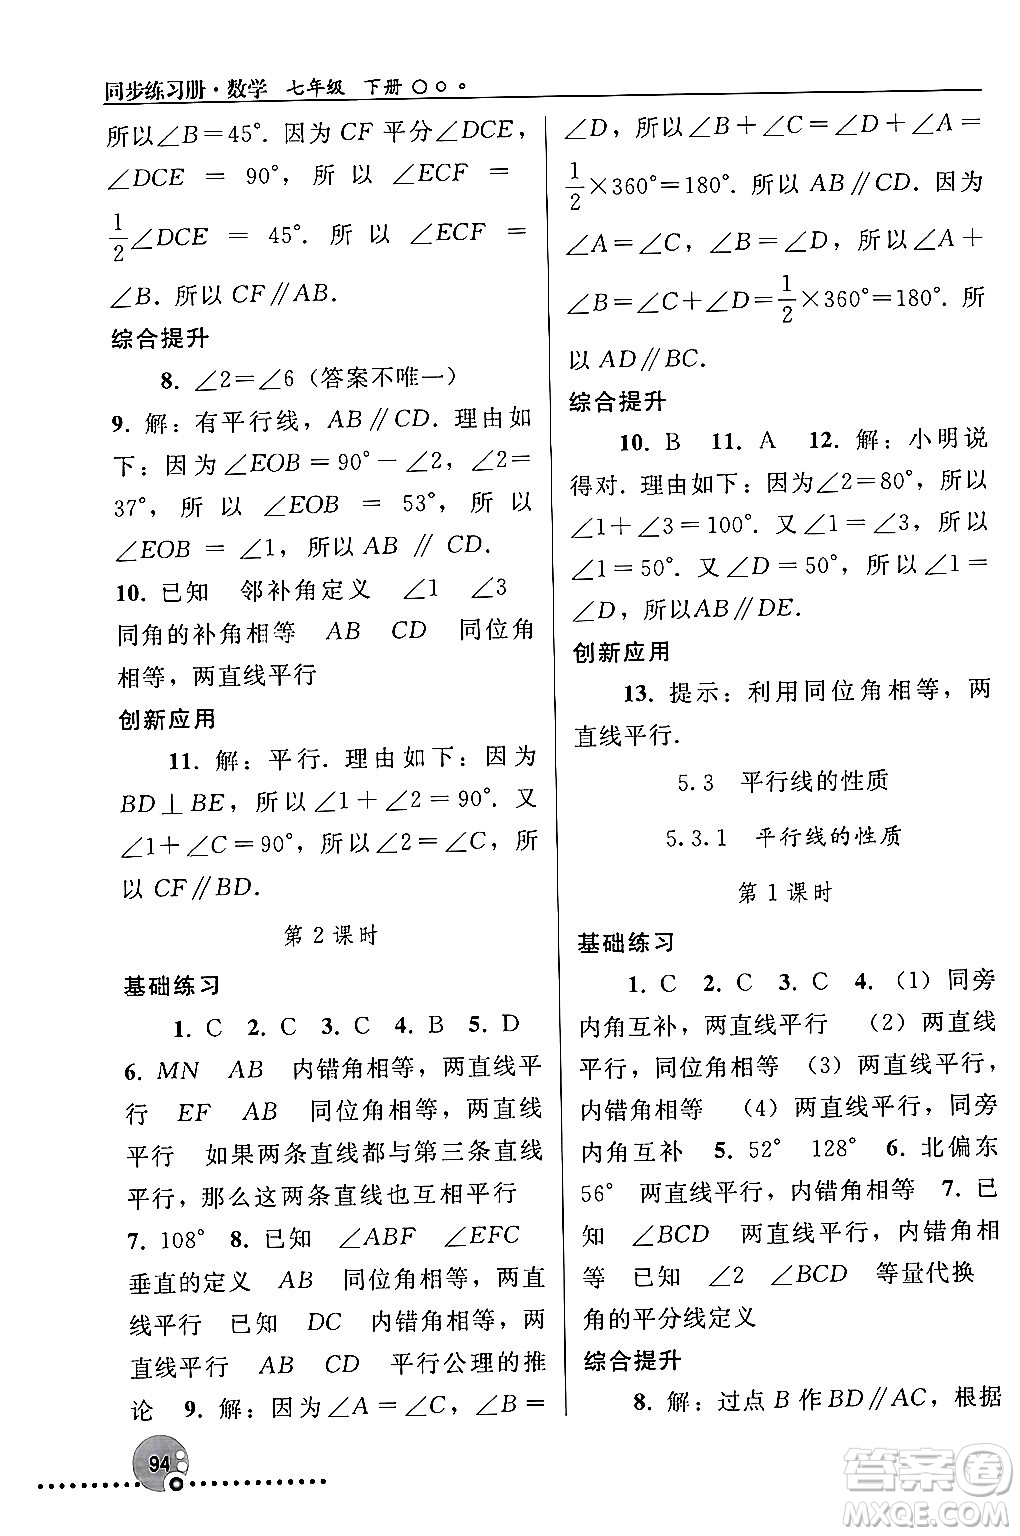 同步练习册·数学 七年级 下册
所以∠B＝45°. 因为 CF 平分∠DCE,
∠DCE ＝ 90°, 所 以 ∠ECF ＝
1/2∠DCE ＝ 45°. 所 以 ∠ECF ＝
∠B. 所以 CF∥AB.
综合提升
8. ∠2＝∠6（答案不唯一）
9. 解：有平行线，AB∥CD. 理由如
下：因为∠EOB＝90°－∠2，∠2＝
37°，所 以 ∠EOB ＝ 53°，所 以
∠EOB＝∠1，所以 AB ∥ CD.
10. 已知 邻补角定义 ∠1 ∠3
同角的补角相等 AB CD 同位角
相等，两直线平行
创新应用
11. 解：平行. 理由如下：因为
BD⊥BE，所以∠1＋∠2＝90°. 又
∠1＋∠C＝90°，所以∠2＝∠C，所
以 CF∥BD.
第 2 课时
基础练习
1. C 2. C 3. C 4. B 5. D
6. MN AB 内错角相等，两直线平
行 EF AB 同位角相等，两直线
平行 如果两条直线都与第三条直线
平行，那么这两条直线也互相平行
7. 108° 8. 已知 ∠ABF ∠EFC
垂直的定义 AB 同位角相等，两直
线平行 已知 DC 内错角相等，两
直线平行 AB CD 平行公理的推
论 9. 解：因为∠A＝∠C，∠B＝
∠D，所以∠B＋∠C＝∠D＋∠A＝
1/2×360°＝180°. 所以 AB∥CD. 因为
∠A＝∠C，∠B＝∠D，所以∠A＋
∠B＝∠C＋∠D＝1/2×360°＝180°. 所
以 AD∥BC.
综合提升
10. B 11. A 12. 解：小明说
得对. 理由如下：因为∠2＝80°，所以
∠1＋∠3＝100°. 又∠1＝∠3，所以
∠1＝50°. 又∠D＝50°，所以∠1＝
∠D，所以AB∥DE.
创新应用
13. 提示：利用同位角相等，两
直线平行.
5.3 平行线的性质
5.3.1 平行线的性质
第 1 课时
基础练习
1. C 2. C 3. C 4.（1）同旁
内角互补，两直线平行 （2）两直线
平行，同位角相等 （3）两直线平行，
内错角相等 （4）两直线平行，同旁
内角互补 5. 52° 128° 6. 北偏东
56° 两直线平行，内错角相等 7. 已
知 ∠BCD 两直线平行，内错角相
等 已知 ∠2 ∠BCD 等量代换
角的平分线定义
综合提升
8. 解：过点 B 作 BD∥AC，根据
94
答案圈
MXQE.COM